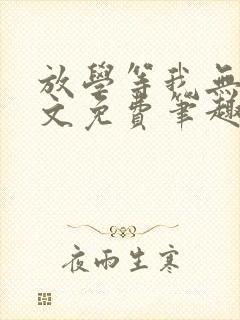 放學等我無
文免費筆趣
夜雨生寒